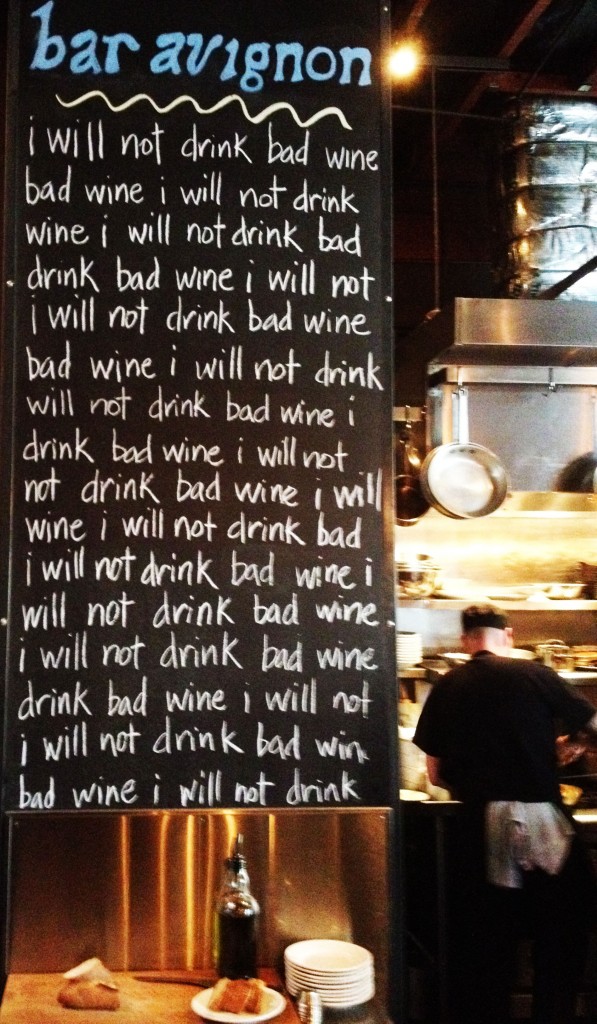 bar avignon
i will not drink bad wine
bad wine i will not drink
wine i will not drink bad
drink bad wine i will not
i will not drink bad wine
bad wine i will not drink
will not drink bad wine i
drink bad wine i will not
not drink bad wine i will
wine i will not drink bad
i will not drink bad wine i
will not drink bad wine
i will not drink bad wine
drink bad wine i will not
i will not drink bad wine
bad wine i will not drink